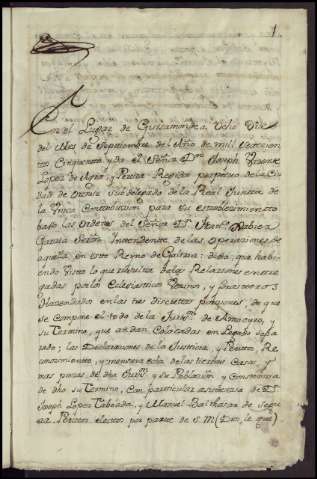 1.
En el Lugar de Guitamondea, Ocho Dias
del Mes de Septiembre del Año de mil Setecien
tos Cinquenta y dos el Señor Dn. Joseph Vizente
Lopez de y Rexidor perpetuo de la Ciu
dad de Orense Subdelegado de la Real Junta de
la Única Contribucion para su establecimiento
bajo las ordenes del Señor Dn. Xavier
Garcia Intendente de las operaziones de
aquella en este Reyno de Galicia: dixo, que havien
do visto lo que resulta de las Relaciones entre
gadas por los Eclesiasticos Vezinos, y forasteros
Hazendados en las tres discretas porciones, de que
se compone el todo de la Jurisdn. de y
su termino, que se dan Colocadas en Legajo sepa
rado; las Declaraciones de la Justicia, y Peritos, Re
conocimiento, y memoria de las tierras Casas y
mas piezas de dho y su Poblacion, y Constancia
de dho su Termino, Con particular asistencia de Dn.
Joseph Lopez Taboada, y Manuel Balthasar de
Peritos electos por parte de S. M. (Dios le gue)